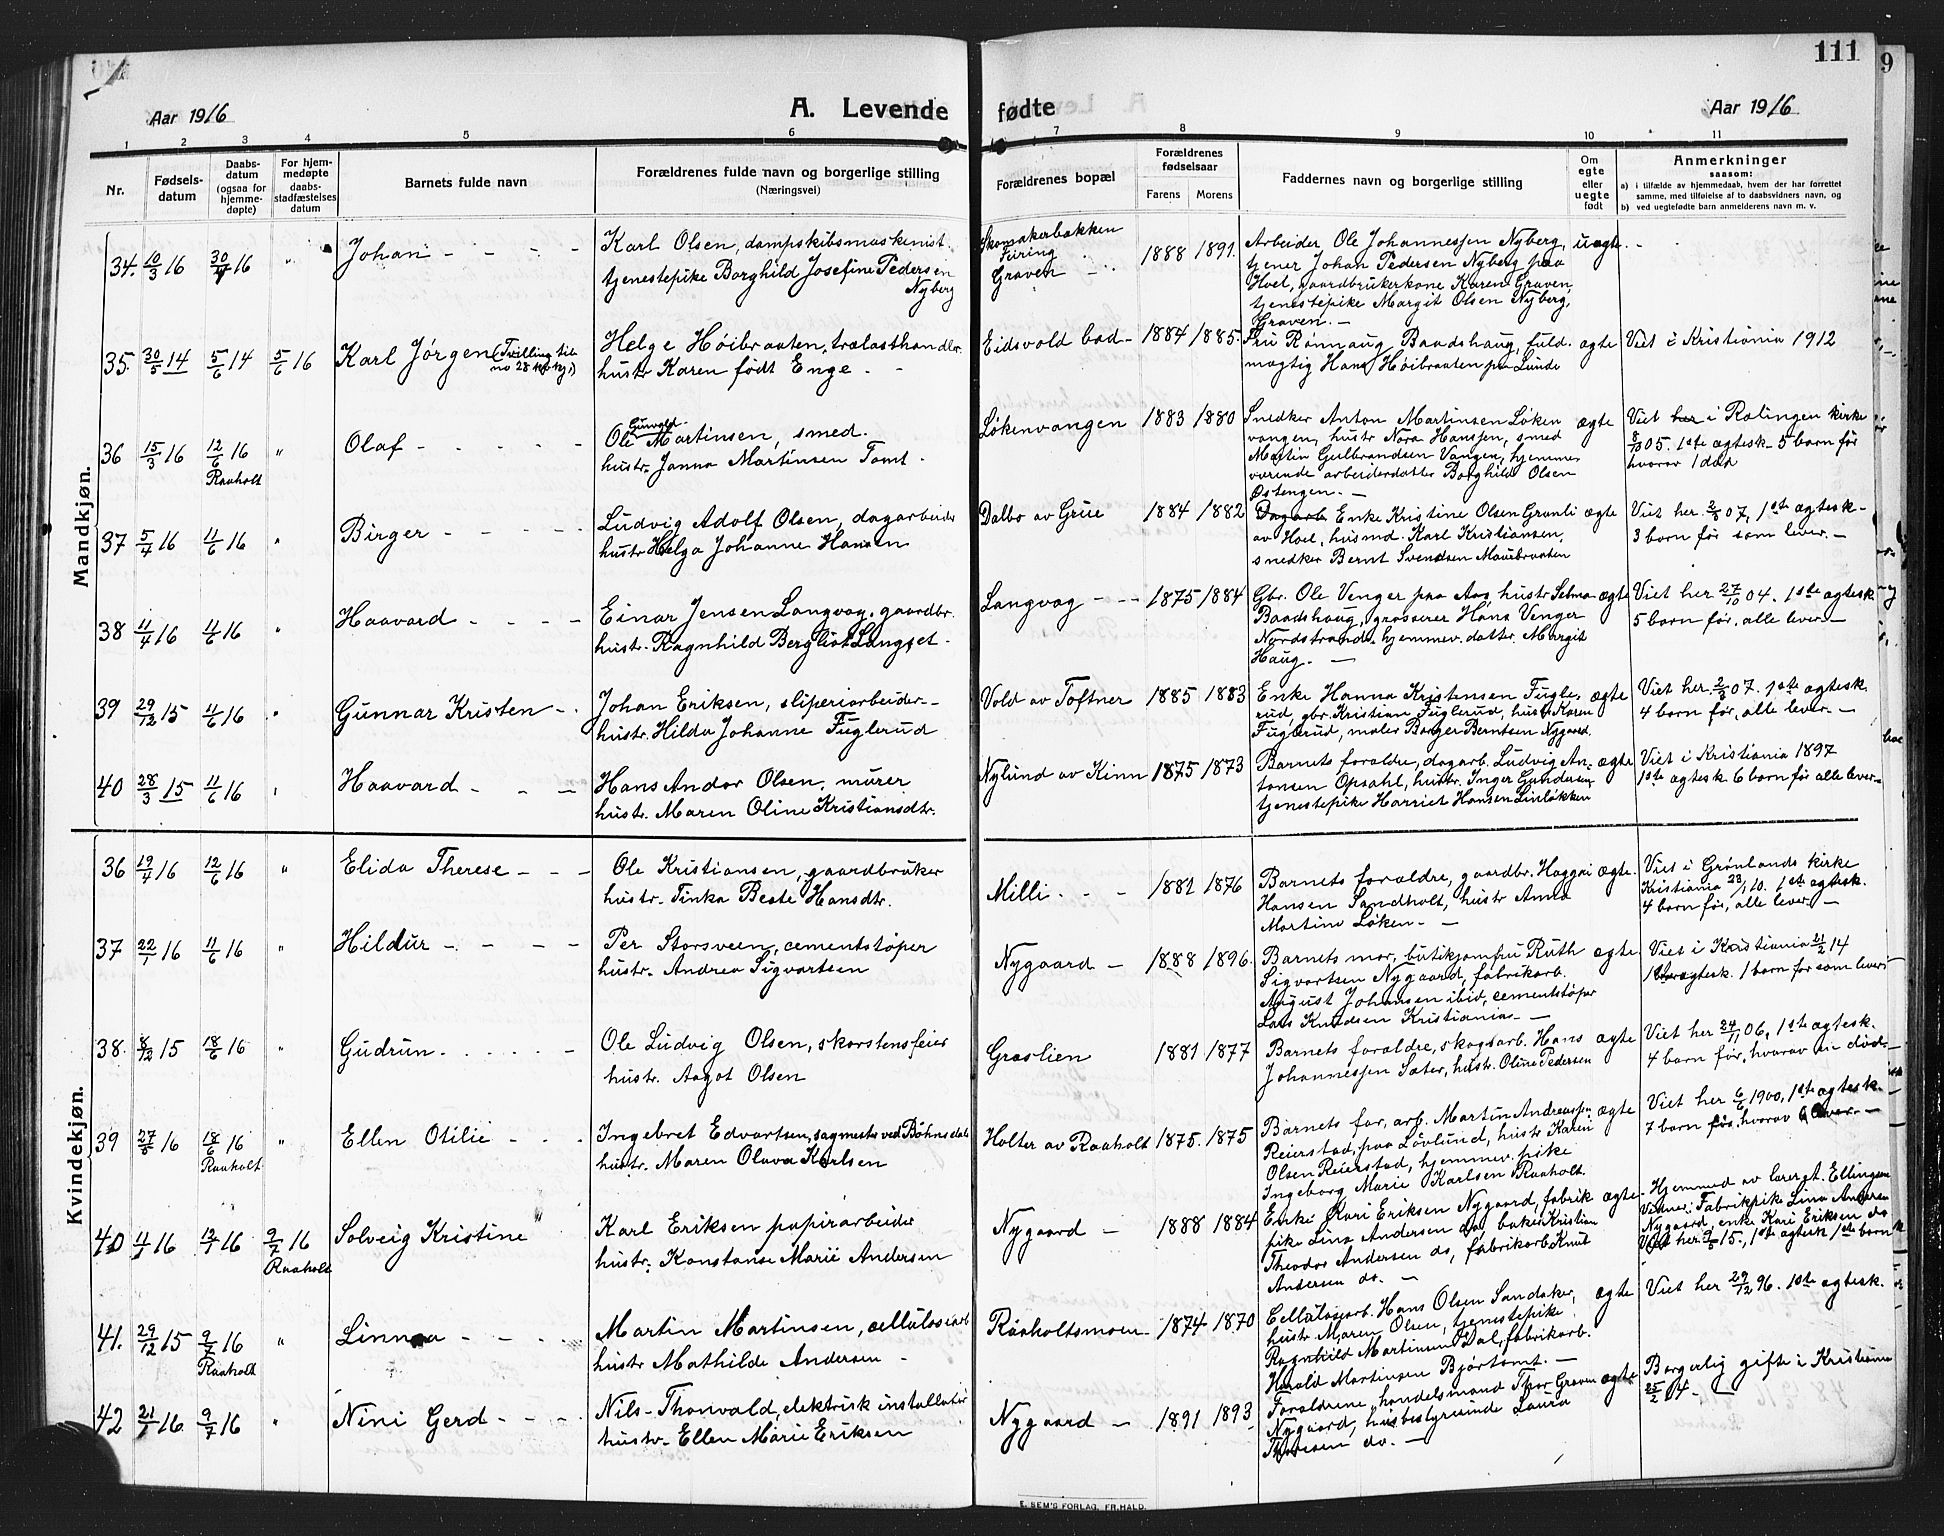 111
9
Aar 1916
A. Levende
fødte
Aar 1916
1 2 3 4 5 6 7 8 9 10 11
Nr.
Fødsels-
datum
Daabs-
datum
(ogsaa for
hjemme-
døpte)
For hjem-
medøpte
daabs-
stadfæstelses
datum
Barnets fulde navn
Forældrenes fulde navn og borgerlige stilling
(Næringsvei)
Forældrenes bopæl
Forældrenes
fødselsaar
Farens Morens
Faddernes navn og borgerlige stilling
Om
egte
eller
uegte
født
Anmerkninger
saasom:
a) i tilfælde av hjemmedaab, hvem der har forrettet
samme, med tilføielse af to daabsvidners navn, og
b) ved uegtefødte barn anmelderens navn m. v.
Mandkjøn.
34. 10/3 16 30/4 16 " Johan - - - -
Karl Olsen, dampskibsmaskinist
tjenestepike Borghild Josefine Pedersen
Nyberg
Skomakerbakken
Feiring
Graven - -
1888 1891.
Arbeider Ole Johannessen Nyberg,
tjener Johan Pedersen Nyberg paa
Hoel, gaardbrukerkone Karen Graven,
tjenestepike Margit Olsen Nyberg,
Graven. -
uægte. -
35. 30/5 14 5/6 14 5/6 16 Karl Jørgen (Tvilling til
no 28
Helge Høibraaten, trælasthandler
hustr. Karen født Enge - -
Eidsvold bad -
1884 1885.
Fru Rønnaug Baadshaug, fuld-
mægtig Hans Høibraaten paa Lunde
ægte
Viet i Kristiania 1912
36 15/3 16 12/6 16 " Olaf - - - -
Raaholt
Gunvald
Ole Martinsen, smed.
hustr. Janna Martinsen Tomt -
Løkenvangen
1883 1880
Snedker Anton Martinsen Løken
vangen, hustr Nora Hanssen, smed
Martin Gulbrandsen Vangen, hjemme-
værende arbeiderdatter Borghild Olsen
Østengen. -
ægte
Viet her i Rælingen kirke
8/10 05. 1ste ægtesk - 5 barn før
hvorav 1 død
37 5/4 16 11/6 16 " Birger - - - -
Ludvig Adolf Olsen, dagarbeider
hustr Helga Johanne Hansen
Dalbo av Grue
1884 1882
Dagarb. Enke Kristine Olsen Granli
av Hoel, husmd. Karl Kristiansen,
snedker Bernt Svendsen Maurbraaten
ægte
Viet her 2/8 07, 1ste ægtesk -
3 barn før som lever. -
38 11/4 16 11/6 16 " Haavard - - - -
Einar Jensen Langvag, gaardbr.
hustr. Ragnhild Bergliot Langset -
Langvag - - -
1875 1884
Gbr. Ole Venger paa Aas, hustr Selma
Baadshaug, grosserer Hans Venger
Nordstrand, hjemmev. datter Margit
Haug. -
ægte
Viet her 27/10 04. 1ste ægtesk
5 barn før, alle lever -
39 29/12 15 11/6 16 " Gunnar Kristen - -
Johan Eriksen, sliperiarbeider -
hustr. Hilda Johanne Fuglerud
Vold av Toftner
1885 1883
Enke Hanna Kristensen Fugle-
rud, gbr. Kristian Fuglerud, hustr Karen
Fuglerud, maler Borger Berntsen Nygaard
ægte
Viet her 2/3 07. 1ste ægtesk
4 barn før, alle lever. -
40 28/3 15 11/6 16 " Haavard - - -
Hans Andor Olsen, murer
hustr. Maren Oline Kristiansdtr.
Nylund av Kinn
1875 1873
Barnets forældre, dagarb. Ludvig An-
tonsen Opsahl, hustr. Inger Gundersen
tjenestepike Harriet Hansen Linløkken
ægte
Viet i Kristiania 1897
1ste ægtesk 6 barn før alle lever -
Kvindekjøn.
36 19/4 16 12/6 16 " Elida Therese - - -
Ole Kristiansen, gaardbruker
hustr. Tinka Beate Hansdtr.
Milli - - -
1882 1876
Barnets forældre, gaardbr. Haggai
Hansen Sandholt, hustr Anna
Martine Løken - -
ægte.
Viet i Grønlands kirke
Kristiania 23/1 10. 1ste ægtesk.
4 barn før, alle lever -
37 22/1 16 11/6 16 " Hildur - - - -
Per Storsveen, cementstøper
hustr. Andrea Sigvartsen
Nygaard -
1888 1896.
Barnets mor, butikjomfru Ruth
Sigvartsen Nygaard, fabrikarb.
August Johansen ibid, cementstøper
Lars Knudsen Kristiania - -
ægte
Viet i Kristiania 21/2 14
1ste ægtesk. 1 barn før som lever -
38. 8/12 15 18/6 16 " Gudrun - - - -
Ole Ludvig Olsen, skorstensfeier
hustr. Aagot Olsen
Graslien
1881 1877
Barnets forældre, skogsarb. Hans
Johannessen Sæter, hustr. Oline Pedersen
ægte
Viet her 24/1 06, 1ste ægtesk.
4 barn før, hvorav en død. -
39 27/5 16 18/6 16 " Ellen Otilie - - -
Raaholt
Ingebret Edvartsen, sagmester ved Bøhnsdalen
hustr. Maren Olava Karlsen
Holter av Raaholt
1875. 1875
Barnets far, arb. Martin Andreassen
Reierstad, paa Løvlund, hustr Karen
Olsen Reierstad, hjemmev. pike
Ingeborg Marie Karlsen Raaholt.
ægte
Viet her 6/6 1900, 1ste ægtesk. -
7 barn før, hvorav 6 lever. -
40 11/1 16 12/1 16 9/7 16 Solveig Kristine "
Raaholt
Karl Eriksen papirarbeider
hustr. Konstanse Marie Andersen
Nygaard -
1888 1884
Enke Kari Eriksen Nygaard, fabrik
pike Lina Andersen do, baker Kristian
Theodor Andersen do, fabrikarb Knut
Andersen do. -
ægte -
Hjemmed av læreret. Ellingsen
Vidner: Fabrikpike Lina Andersen
Nygaard, enke Kari Eriksen do
Viet her 15., 1ste ægtesk 1ste barn
41. 29/12 15 9/7 16 " Linnea - - - -
Raaholt
Martin Martinsen, cellulosearb
hustr Mathilde Andersen -
Raaholtsmoen -
1874 1870
Cellulosearb. Hans Olsen Sandaker,
hustr Maren Olsen, tjenestepike
Ragnhild Martinsen Dal, fabrikarb.
Harald Martinsen Bjørtomt. -
ægte
Viet her 29/12 96. 1ste ægtesk.
42 21/1 16 9/7 16 " Nini Gerd - - -
Nils Thorvald, elektrisk installatør
hustr. Ellen Marie Eriksen
Nygaard -
1891 1893
Forældrene, handelsmand Thor Graven
Nygaard, husbestyrerinde Laura
Thoresen do. -
ægte
Borgerlig gifte i Kristiania
25/2 14 - -
E. SEM'S FORLAG, FR.HALD.